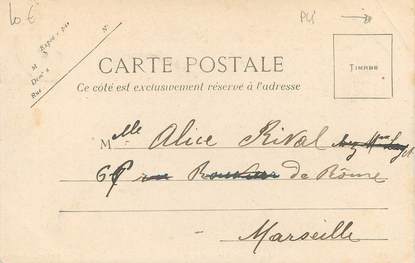 10 €
N°
Expos on par
M
Dem t
Rue
CARTE POSTALE
Ce côté est exclusivement réservé à l'adresse
TIMBRE
Mlle Alice Rival chez Mme
rue de Rome
Marseille